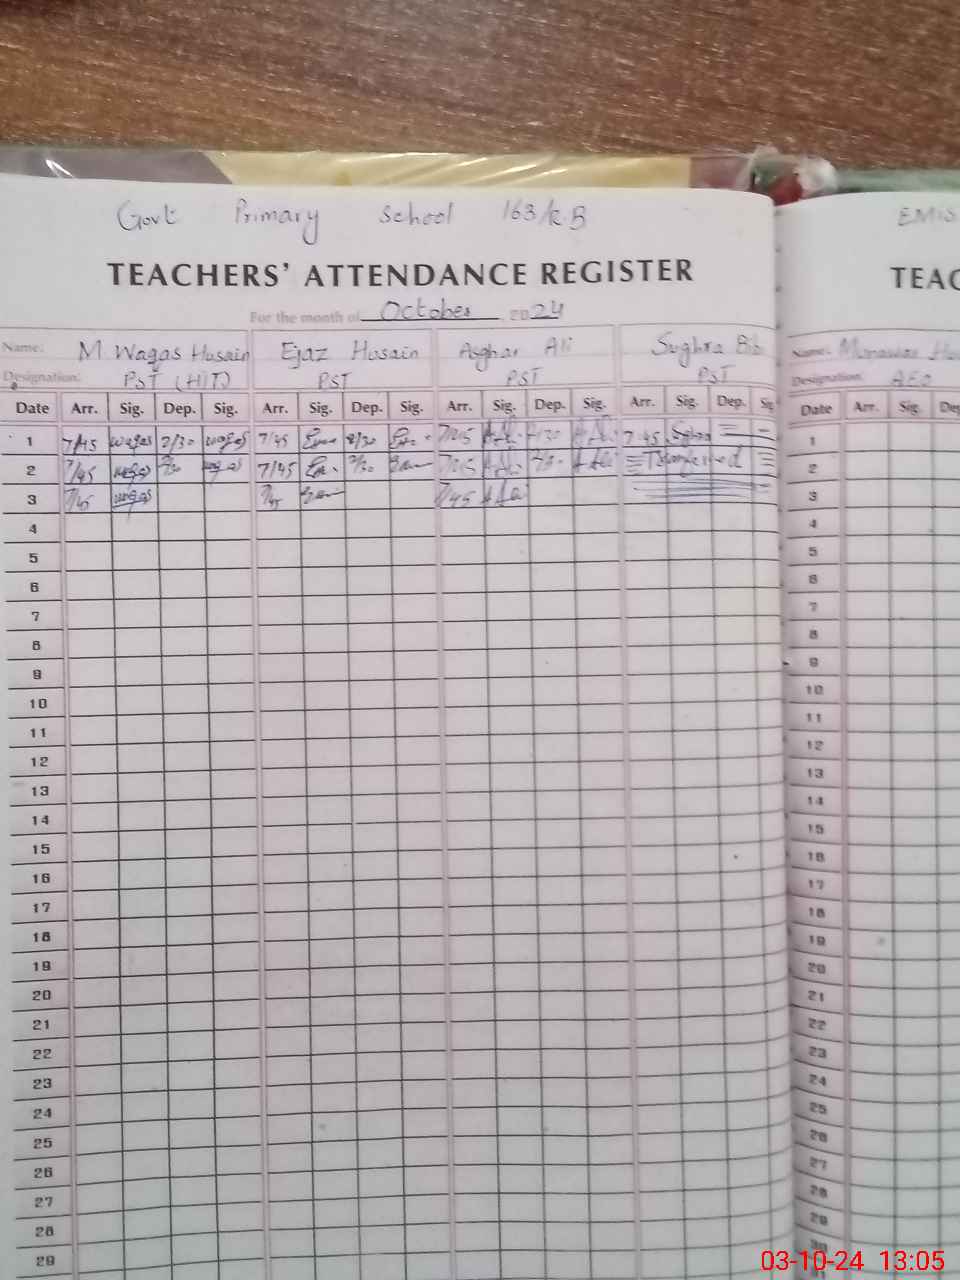 Govt Primary School 163/K.B
EMIS
TEACHERS' ATTENDANCE REGISTER
TEAC
For the month of October 2024
Name: M Waqas Husain Ejaz Husain Asghar Ali Sughra Bibi
Name: Munawar Hu
Designation: PST (HIT) PST PST PST
Designation. AEO
Date Arr. Sig. Dep. Sig. Arr. Sig. Dep. Sig. Arr. Sig. Dep. Sig. Arr. Sig. Dep. Sig
Date Arr. Sig. Dep
1 7/45 waqas 2/30 waqas 7/45 2/30 7/45 A Ali 2/30 A Ali 7:45 Sghra
1
2 7/45 waqas 2/30 waqas 7/45 2/30 7/45 A Ali 2/30 A Ali Transferred
2
3 7/45 waqas 7/45 7/45 A Ali
3
4
4
5
5
6
6
7
7
8
8
9
9
10
10
11
11
12
12
13
13
14
14
15
15
16
16
17
17
18
18
19
19
20
20
21
21
22
22
23
23
24
24
25
25
26
26
27
27
28
28
29
29
30
03-10-24 13:05